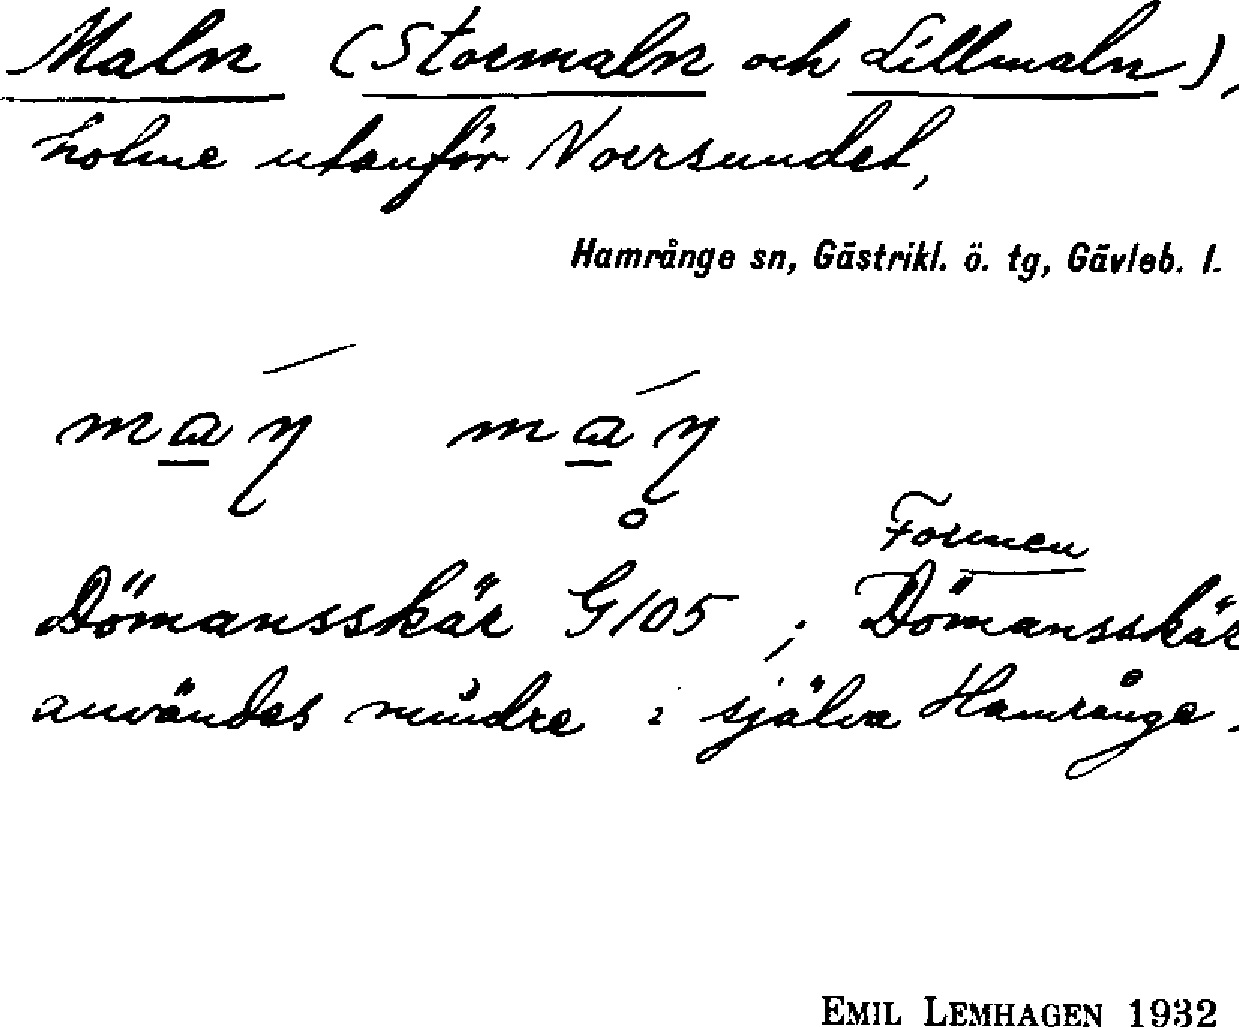 Maln (Stormaln och Lillmaln),
holme utanför Norrsundet,
Hamrånge sn, Gästrikl. ö. tg, Gävleb. l.
Formen
Dömansskär G105 ; Dömansskär
användes mindre i själva Hamrånge.
EMIL LEMHAGEN 1932